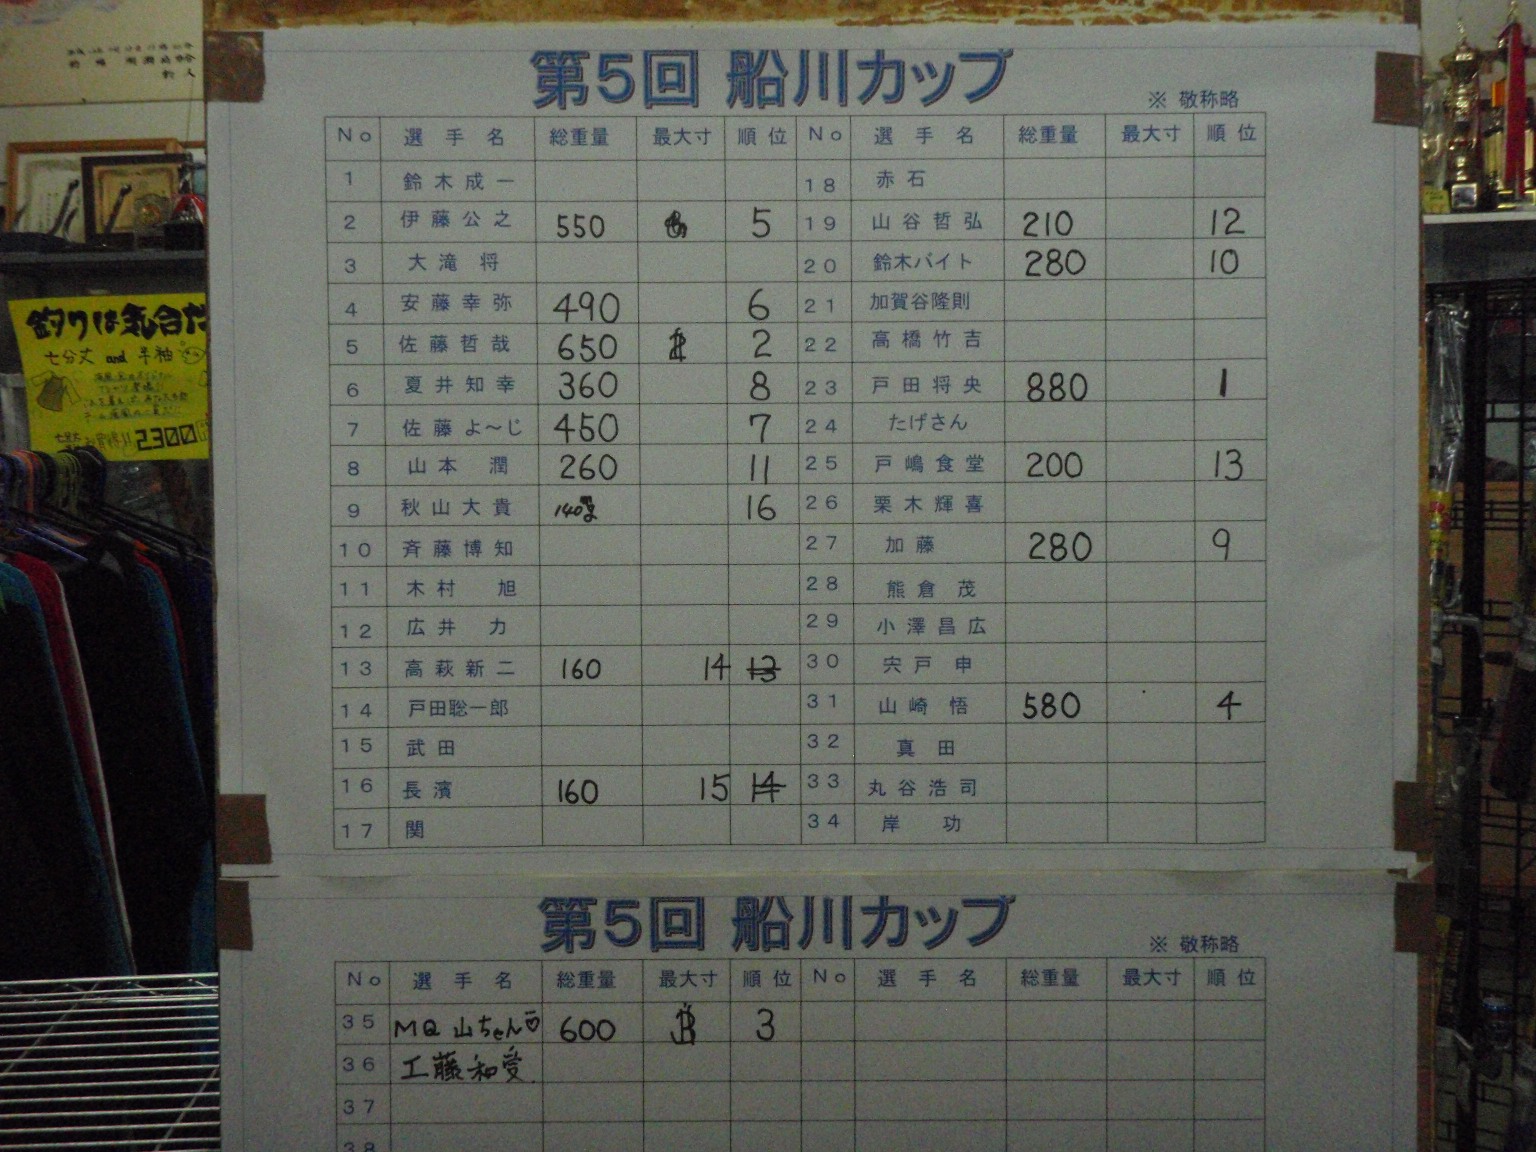 第5回 船川カップ
※ 敬称略
No 選手名 総重量 最大寸 順位 No 選手名 総重量 最大寸 順位
1 鈴木成一 18 赤石
2 伊藤公之 550 5 19 山谷哲弘 210 12
3 大滝 将 20 鈴木バイト 280 10
4 安藤幸弥 490 6 21 加賀谷隆則
5 佐藤哲哉 650 2 22 高橋竹吉
6 夏井知幸 360 8 23 戸田将央 880 1
7 佐藤よ〜じ 450 7 24 たげさん
8 山本 潤 260 11 25 戸嶋食堂 200 13
9 秋山大貴 140 16 26 栗木輝喜
10 斉藤博知 27 加藤 280 9
11 木村 旭 28 熊倉 茂
12 広井 力 29 小澤昌広
13 高萩新二 160 14 13 30 宍戸 申
14 戸田聡一郎 31 山崎 悟 580 4
15 武田 32 真田
16 長濱 160 15 14 33 丸谷浩司
17 関 34 岸 功
第5回 船川カップ
※ 敬称略
No 選手名 総重量 最大寸 順位 No 選手名 総重量 最大寸 順位
35 MQ 山ちゃん♡ 600 3
36 工藤和受
37
38
釣りは気合だ
七分丈 and 半袖
2300